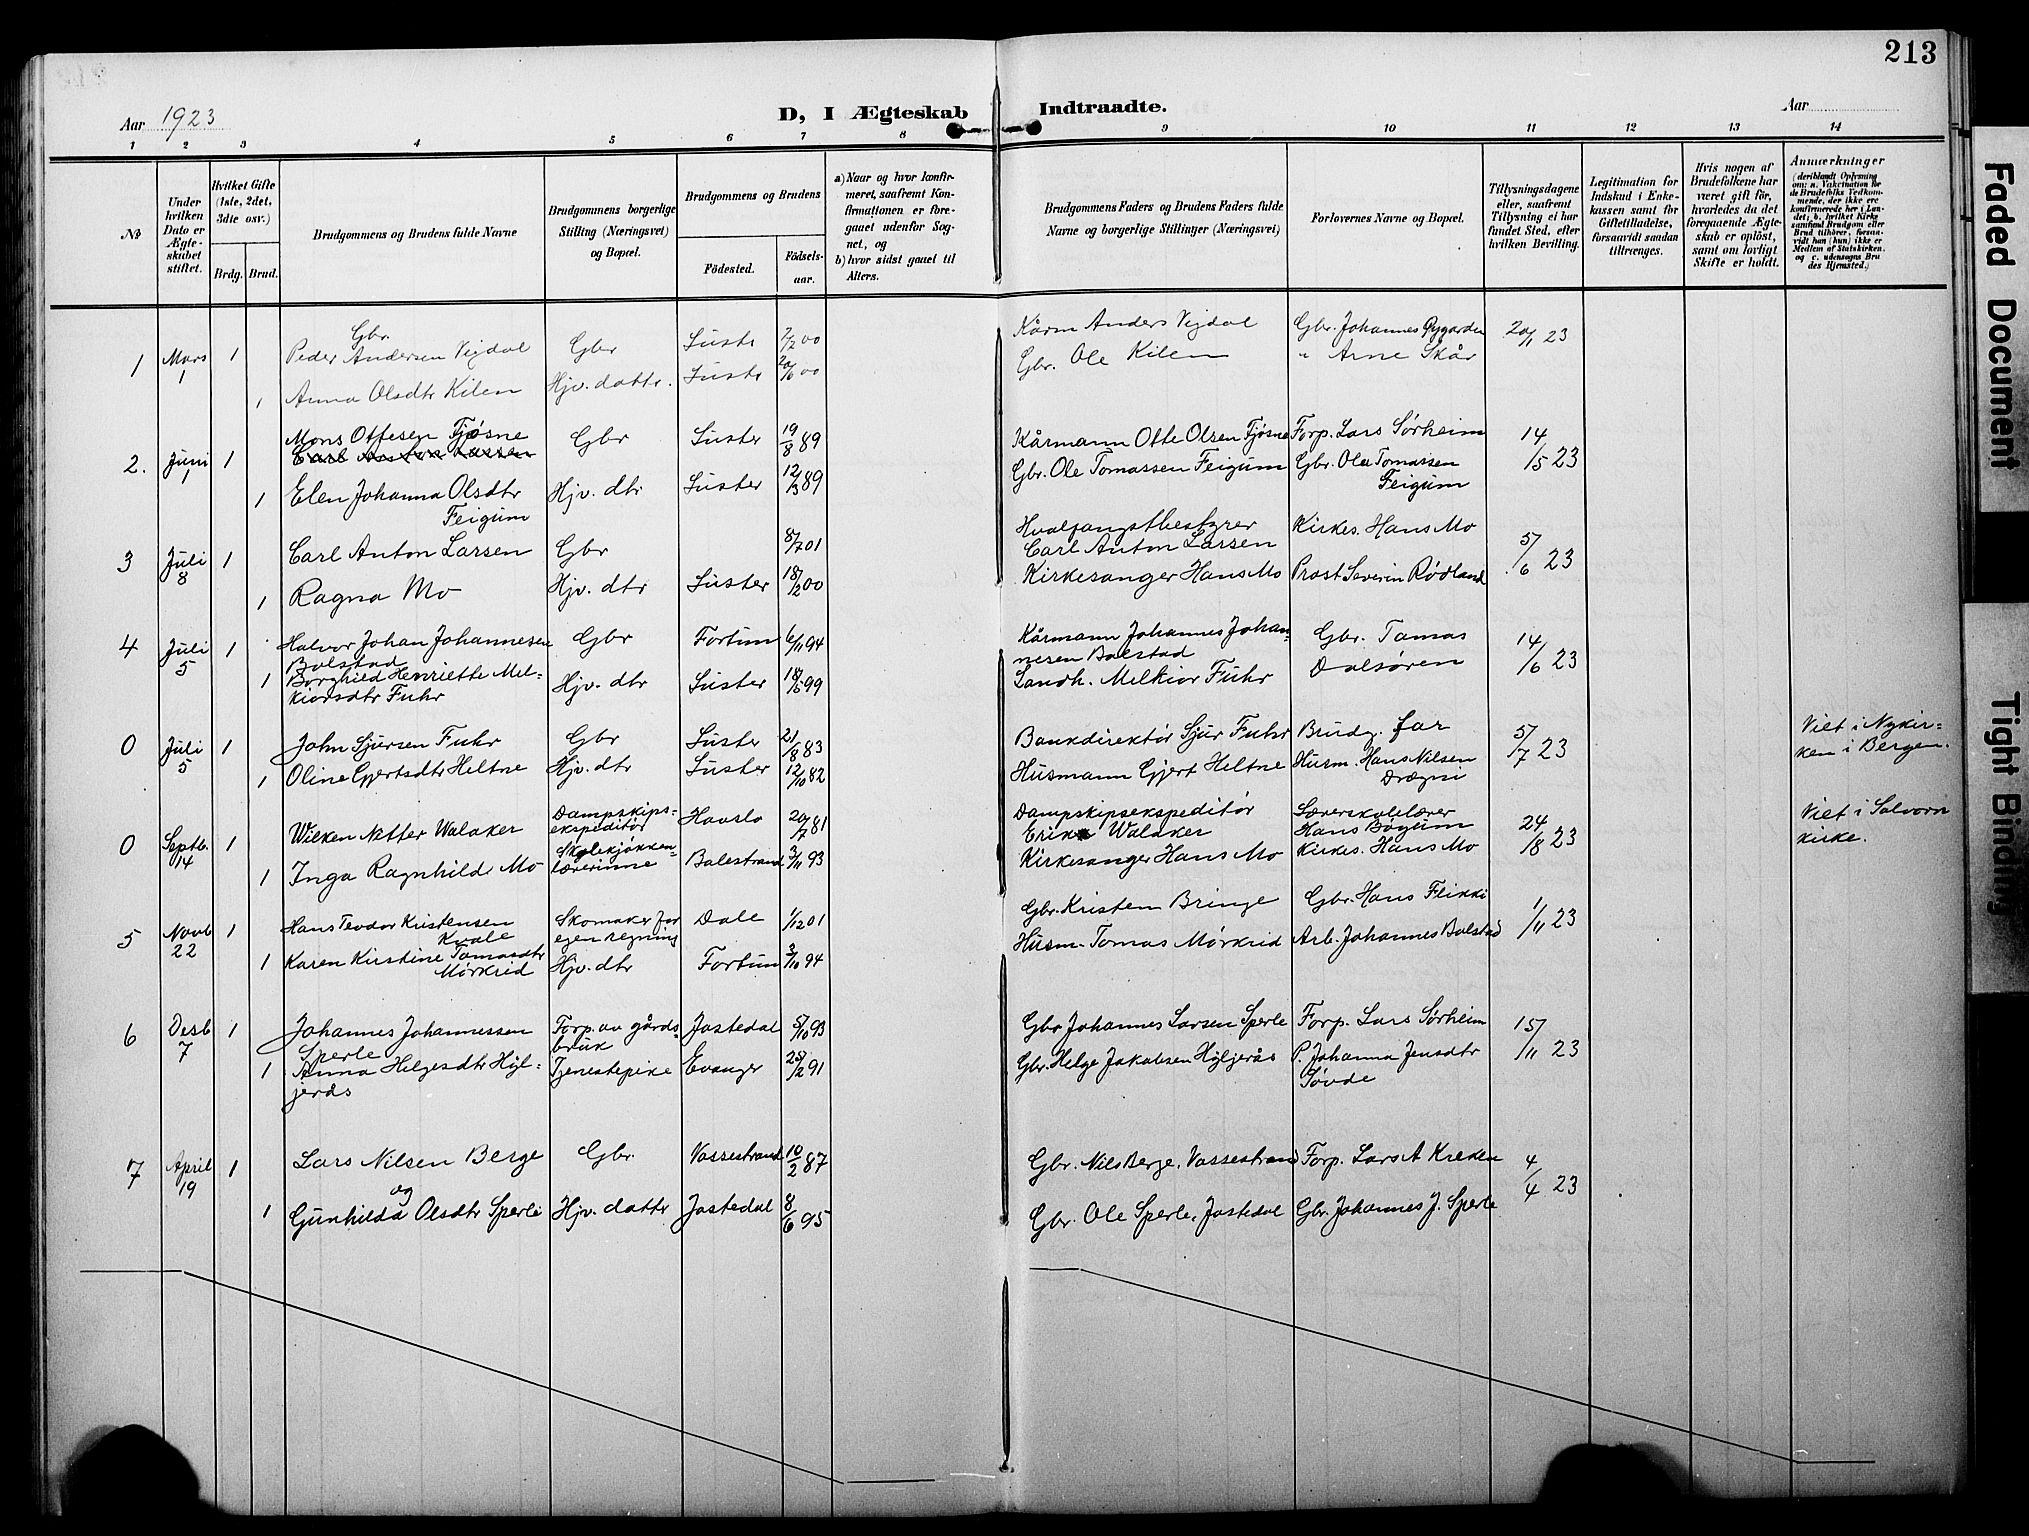 213
Aar 1923
D, I Ægteskab Indtraadte.
Aar
1 2 3 4 5 6 7 8 9 10 11 12 13 14
№
Under
hvilken
Dato er
Ægte-
skabet
stiftet.
Hvilket Gifte
(1ste, 2det,
3die osv.)
Brdg. Brud.
Brudgommens og Brudens fulde Navne
Brudgommens borgerlige
Stilling (Næringsvei)
og Bopæl.
Brudgommens og Brudens
Födested.
Födsels-
aar.
a) Naar og hvor konfir-
meret, saafremt Kon-
firmationen er fore-
gaaet udenfor Sog-
net, og
b) hvor sidst gaaet til
Alters.
Brudgommens Faders og Brudens Faders fulde
Navne og borgerlige Stillinger (Næringsvei)
Forlovernes Navne og Bopæl.
Tillysningsdagene
eller, saafremt
Tillysning ei har
fundet Sted, efter
hvilken Bevilling.
Legitimation for
Indskud i Enke-
kassen samt for
Giftetilladelse,
forsaavidt saadan
tiltrænges.
Hvis nogen af
Brudefolkene har
været gift før,
hvorledes da det
foregaaende Ægte-
skab er oplöst,
samt om lovligt
Skifte er holdt.
Anmærkninger
(deriblandt Oplysning
om: a. Vakcination for
de Brudefolks Vedkom-
mende, der ikke ere
konfirmerede her i Lan-
det; b. hvilket Kirke
samfund Brudgom eller
Brud tilhörer, forsaa-
vidt han (hun) ikke er
Medlem af Statskirken.
og c. udensogns Bru
des Hjemsted.)
1 Mars 1 1 Gbr. Peder Andersen Vigdal Gbr Luster 7/2 00 Kårm Anders Vigdal Gbr. Johannes Øygarden 20/1 23
1 Anna Olsdtr Kilen Hjv. dattr. Luster 20/6 00 Gbr. Ole Kilen " Arne Skår
2. Juni 1 1 Mons Ottesen Fjøsne Gbr Luster 19/8 89 Kårmann Otte Olsen Fjøsne Forp. Lars Sørheim 14/5 23
Carl Anton Larsen
1 Elen Johanna Olsdtr Feigum Hjv. dtr Luster 12/3 89 Gbr. Ole Tomassen Feigum Gbr. Ole Tomassen Feigum
3 Juli 8 1 Carl Anton Larsen Gbr 8/7 01 Hvalfangstbestyrer Carl Anton Larsen Kirkes. Hans Mo 5/6 23
1 Ragna Mo Hjv. dtr Luster 18/2 00 Kirkesanger Hans Mo Prost Severin Rødland
4 Juli 5 1 Halvor Johan Johannesen Bolstad Gbr Fortun 6/11 94 Kårmann Johannes Johannesen Bolstad Gbr. Tomas Dalsøren 14/6 23
1 Borghild Henriette Mel-
kiorsdtr Fuhr Hjv. dtr Luster 18/5 99 Landh. Melkior Fuhr
0 Juli 5 1 John Sjursen Fuhr Gbr Luster 21/8 83 Bankdirektør Sjur Fuhr Brudg. far 5/7 23 Viet i Nykir-
ken i Bergen.
1 Oline Gjertsdtr Heltne Hjv. dtr Luster 12/10 82 Husmann Gjert Heltne Husm. Hans Nilsen Drægni
0 Septbr. 14 1 Wilken Nitter Walaker Dampskips-
ekspeditør Hafslo 20/7 81 Dampskipsekspeditør Erik Walaker Lærerskolelærer Hans Bøgum 24/8 23 Viet i Solvorn
kirke.
1 Inga Ragnhild Mo Skolekjøkken-
lærerinne Balestrand 3/11 93 Kirkesanger Hans Mo Kirkes. Hans Mo
5 Novb 22 1 Hans Teodor Kristensen Kvale Skomaker for egen regning Dale 1/12 01 Gbr. Kristen Bringe Gbr. Hans Flikki 1/11 23
1 Karen Kirstine Tomasdtr Mørkrid Hjv. dtr Fortun 3/10 94 Husm. Tomas Mørkrid Arb. Johannes Bolstad
6 Desb 7 1 Johannes Johannessen Sperle Forp. av gårds-
bruk Jostedal 5/10 93 Gbr Johannes Larsen Sperle Forp. Lars Sørheim 15/11 23
1 Anna Helgesdtr Hyl-
jerås Tjenestepike Evanger 25/2 91 Gbr. Helge Jakobsen Hyljerås P. Johanna Jensdtr Søvde
7 April 19 1 Lars Nilsen Berge Gbr. Vossestrand 10/2 87 Gbr. Nils Berge. Vossestrand Forp. Lars A Kreken 4/4 23
og
1 Gunhilda Olsdtr Sperle Hjv. dattr Jostedal 8/6 95 Gbr. Ole Sperle, Jostedal Gbr. Johannes J. Sperle
Faded Document
Tight Binding